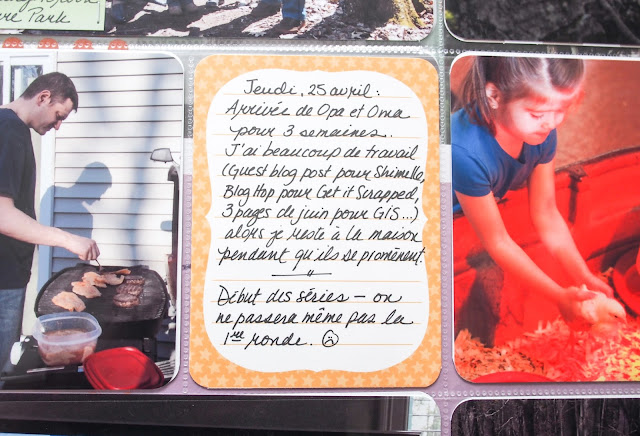 re Park
Jeudi, 25 avril:
Arrivée de Opa et Oma
pour 3 semaines.
J'ai beaucoup de travail
(Guest blog post pour Shimelle,
Blog Hop pour Get it Scrapped,
3 pages de juin pour GIS...)
alors je reste à la maison
pendant qu'ils se promènent.
Début des séries – on
ne passera même pas la
1ère ronde. ☹